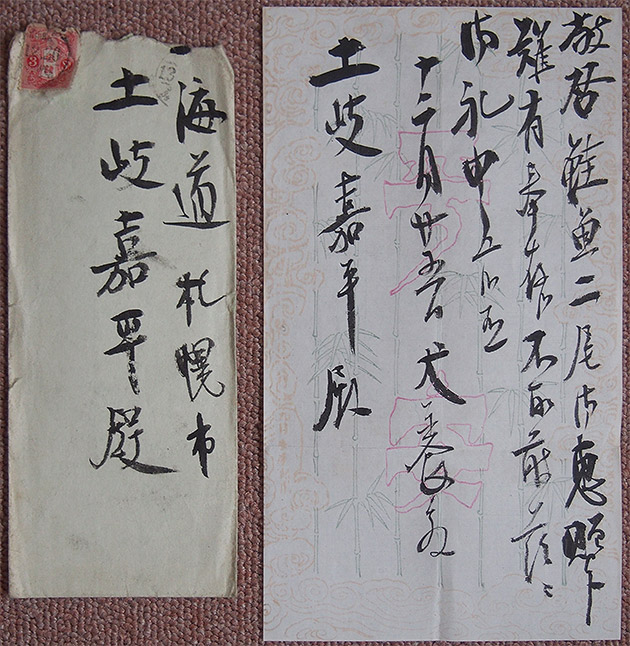 海道 札幌市
土岐嘉平殿
敬啓 鮭魚二尾御恵贈下
難有奉 不取敢
御礼申上候
十二月廿五日 犬養毅
土岐嘉平殿